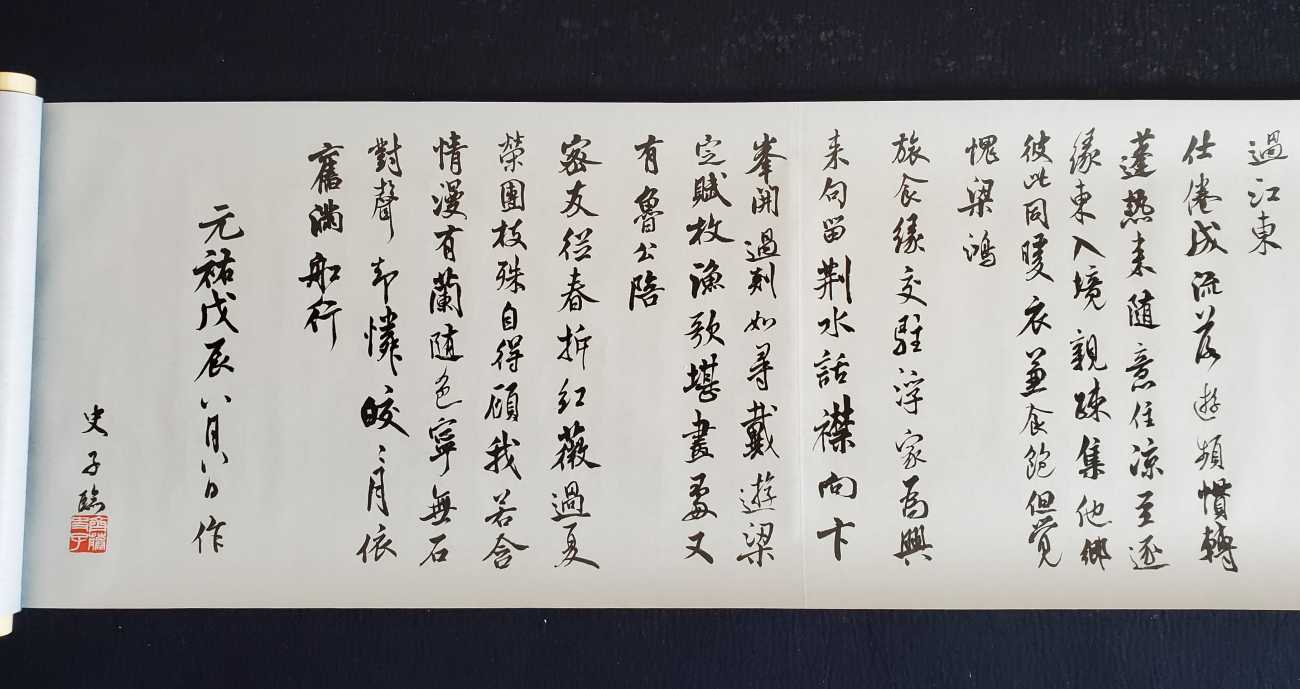 過江東
仕倦成流落遊頻慣轉
蓬熱来隨意住凉至逐
縁東入境親疎集他鄉
彼此同暖衣兼食飽但覺
愧梁鴻
旅食縁交駐浮家為興
来句留荆水話襟向卞
峯開過剡如尋戴遊梁
定賦枚漁歌堪畫處又
有魯公陪
密友從春拆紅薇過夏
榮團枝殊自得顧我若含
情漫有蘭隨色寧無石
對聲却憐皎〻月依
舊滿船行
元祐戊辰八月八日作
史子臨